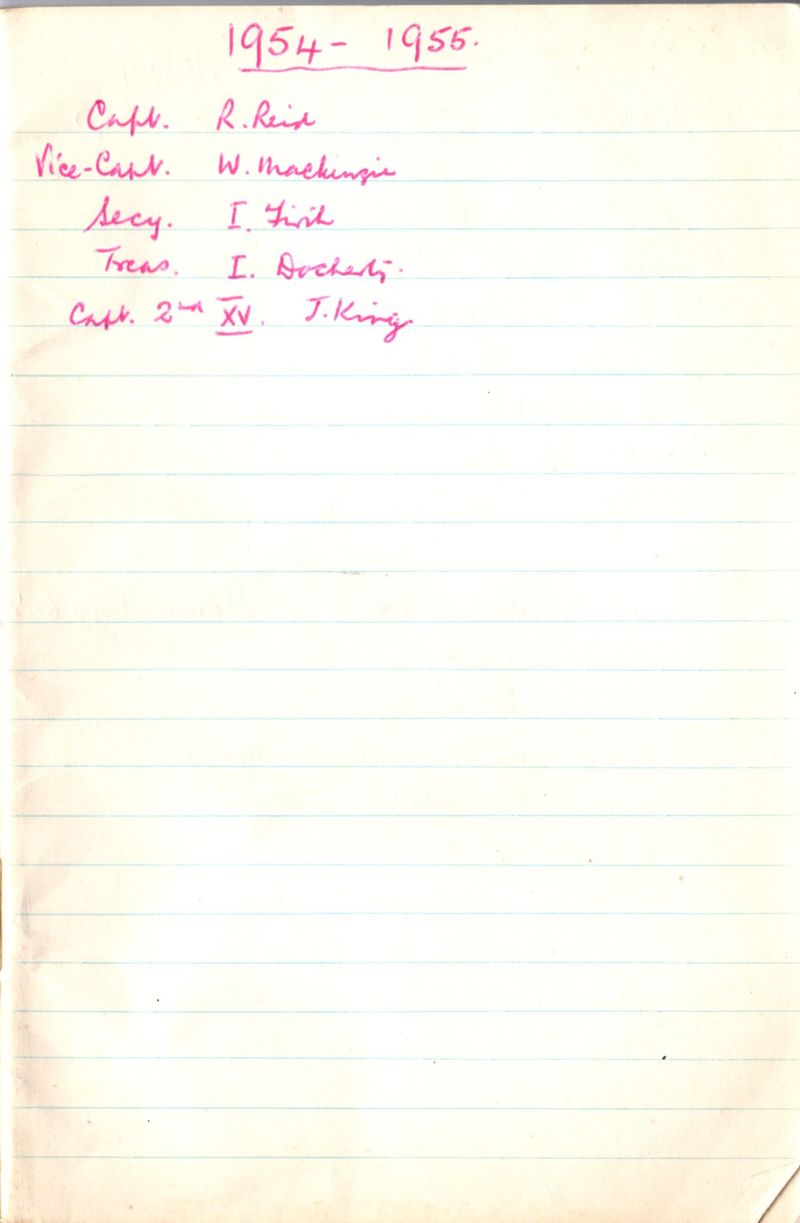 1954 - 1955.
Capt. R. Reid
Vice-Capt. W. Mackenzie
Secy. I. Firth
Treas. I. Docherty.
Capt. 2nd XV. J. King